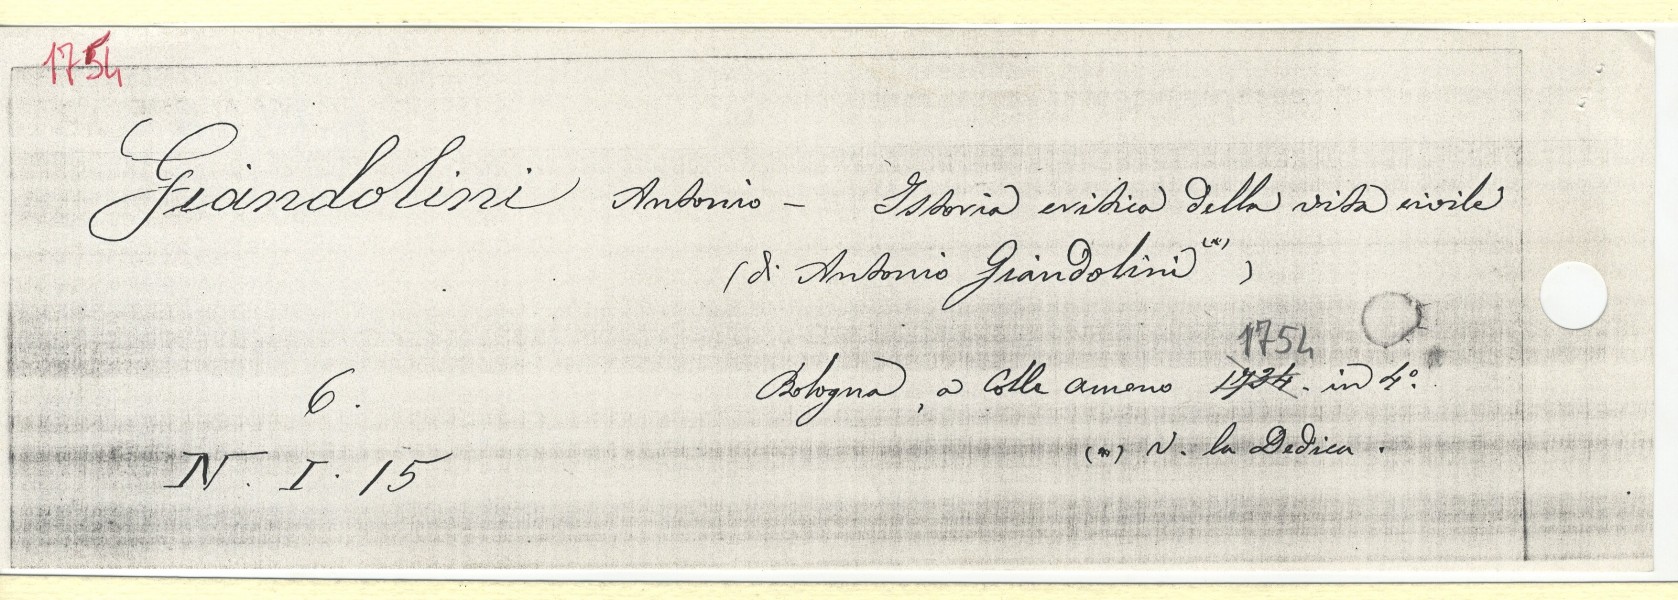 1754
Giandolini Antonio – Istoria critica della vita civile
(di Antonio Giandolini (*) )
1754
Bologna, a Colle ameno 1724. in 4º.
6.
(*) V. la Dedica.
N. I. 15